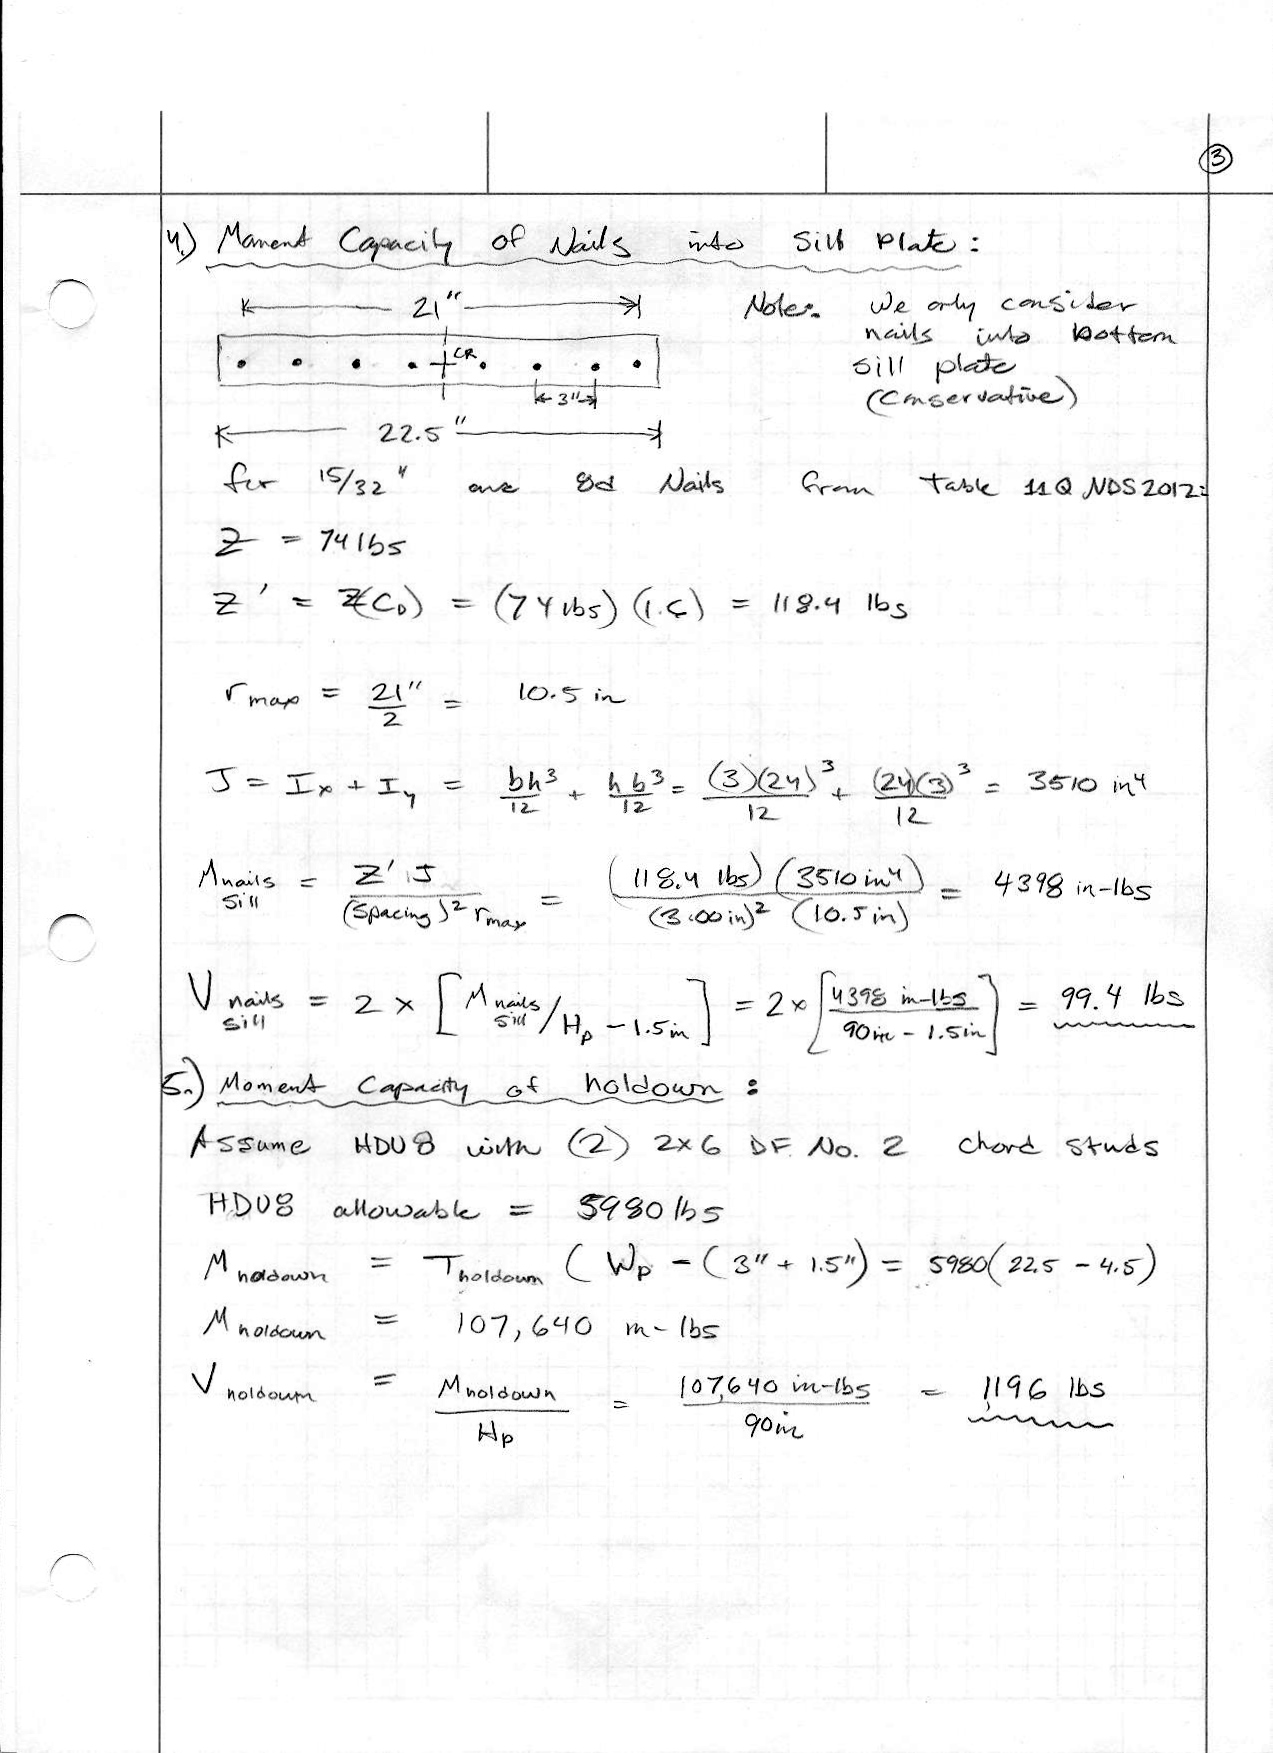 3
4.) Moment Capacity of Nails into Sill Plate:
21"
Note: We only consider
nails into bottom
sill plate
(Conservative)
CR
3"
22.5"
for 15/32" and 8d Nails from Table 11Q NDS 2012:
Z = 74 lbs
Z' = Z(C_D) = (74 lbs)(1.6) = 118.4 lbs
r_max = 21"/2 = 10.5 in
J = I_x + I_y = bh³/12 + hb³/12 = (3)(24)³/12 + (24)(3)³/12 = 3510 in⁴
M_nails sill = Z' J/(Spacing)² r_max = (118.4 lbs)(3510 in⁴)/(3.00 in)² (10.5 in) = 4398 in-lbs
V_nails sill = 2 × [M_nails sill/H_p - 1.5in] = 2 × [4398 in-lbs/90in - 1.5in] = 99.4 lbs
5.) Moment Capacity of holdown:
Assume HDU8 with (2) 2x6 DF No. 2 chord studs
HDU8 allowable = 5980 lbs
M_holdown = T_holdown (W_p - (3" + 1.5") = 5980(22.5 - 4.5)
M_holdown = 107,640 in-lbs
V_holdown = M_holdown/H_p = 107,640 in-lbs/90in = 1196 lbs